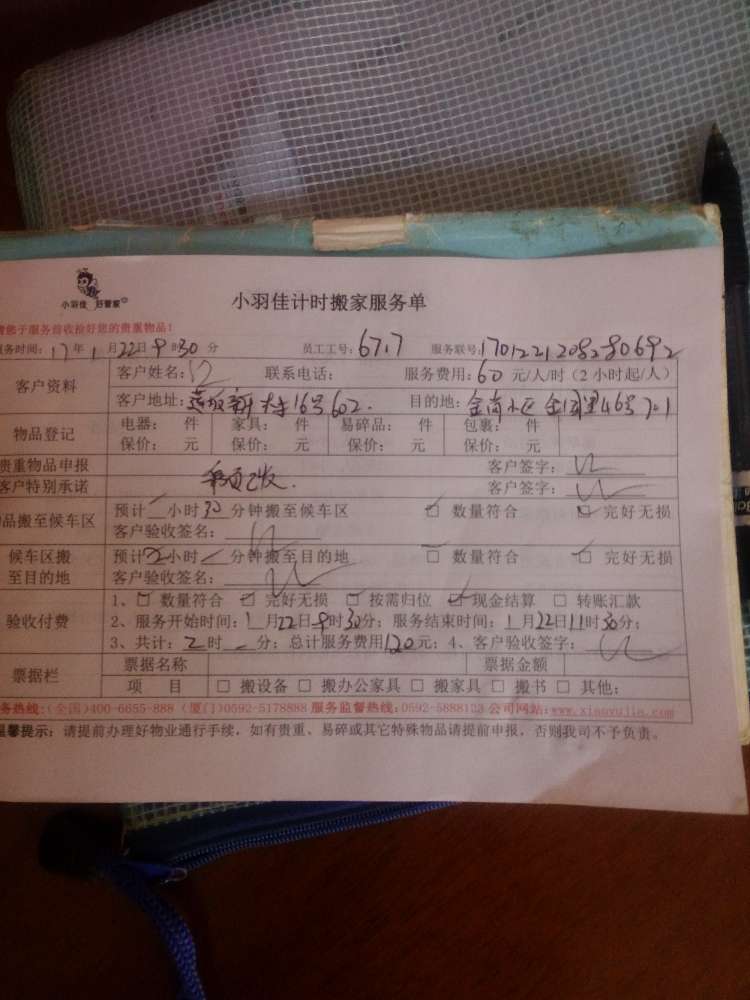 小羽佳 好管家
小羽佳计时搬家服务单
请您于服务前收拾好您的贵重物品!
服务时间: 17年1月22日9时30分 员工工号: 6717 服务联号:
客户资料 客户姓名: 联系电话: 服务费用: 60 元/人/时(2小时起/人)
客户地址: 新 16号602. 目的地: 金尚小区 46号701
物品登记 电器: 件 家具: 件 易碎品: 件 包裹: 件
保价: 元 保价: 元 保价: 元 保价: 元
贵重物品申报 客户签字:
客户特别承诺 客户签字:
物品搬至候车区 预计 小时30分钟搬至候车区 数量符合 完好无损
客户验收签名:
候车区搬至目的地 预计2小时 分钟搬至目的地 数量符合 完好无损
客户验收签名:
验收付费 1、 数量符合 完好无损 按需归位 现金结算 转账汇款
2、服务开始时间: 1月22日9时30分; 服务结束时间: 1月22日11时30分;
3、共计: 2时 分; 总计服务费用120元; 4、客户验收签字:
票据栏 票据名称 票据金额
项 目 搬设备 搬办公家具 搬家具 搬书 其他:
服务热线:(全国)400-6655-888 (厦门)0592-5178888 服务监督热线:0592-5888123 公司网站:www.xiaoyujia.com
温馨提示: 请提前办理好物业通行手续, 如有贵重、易碎或其它特殊物品请提前申报, 否则我司不予负责。